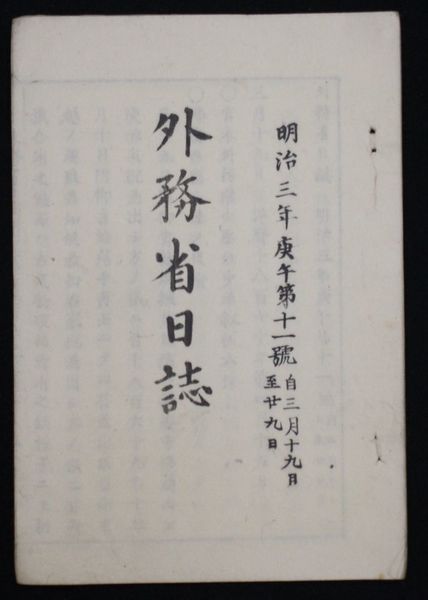 明治三年庚午第十一號 自三月十九日
至廿九日
外務省日誌